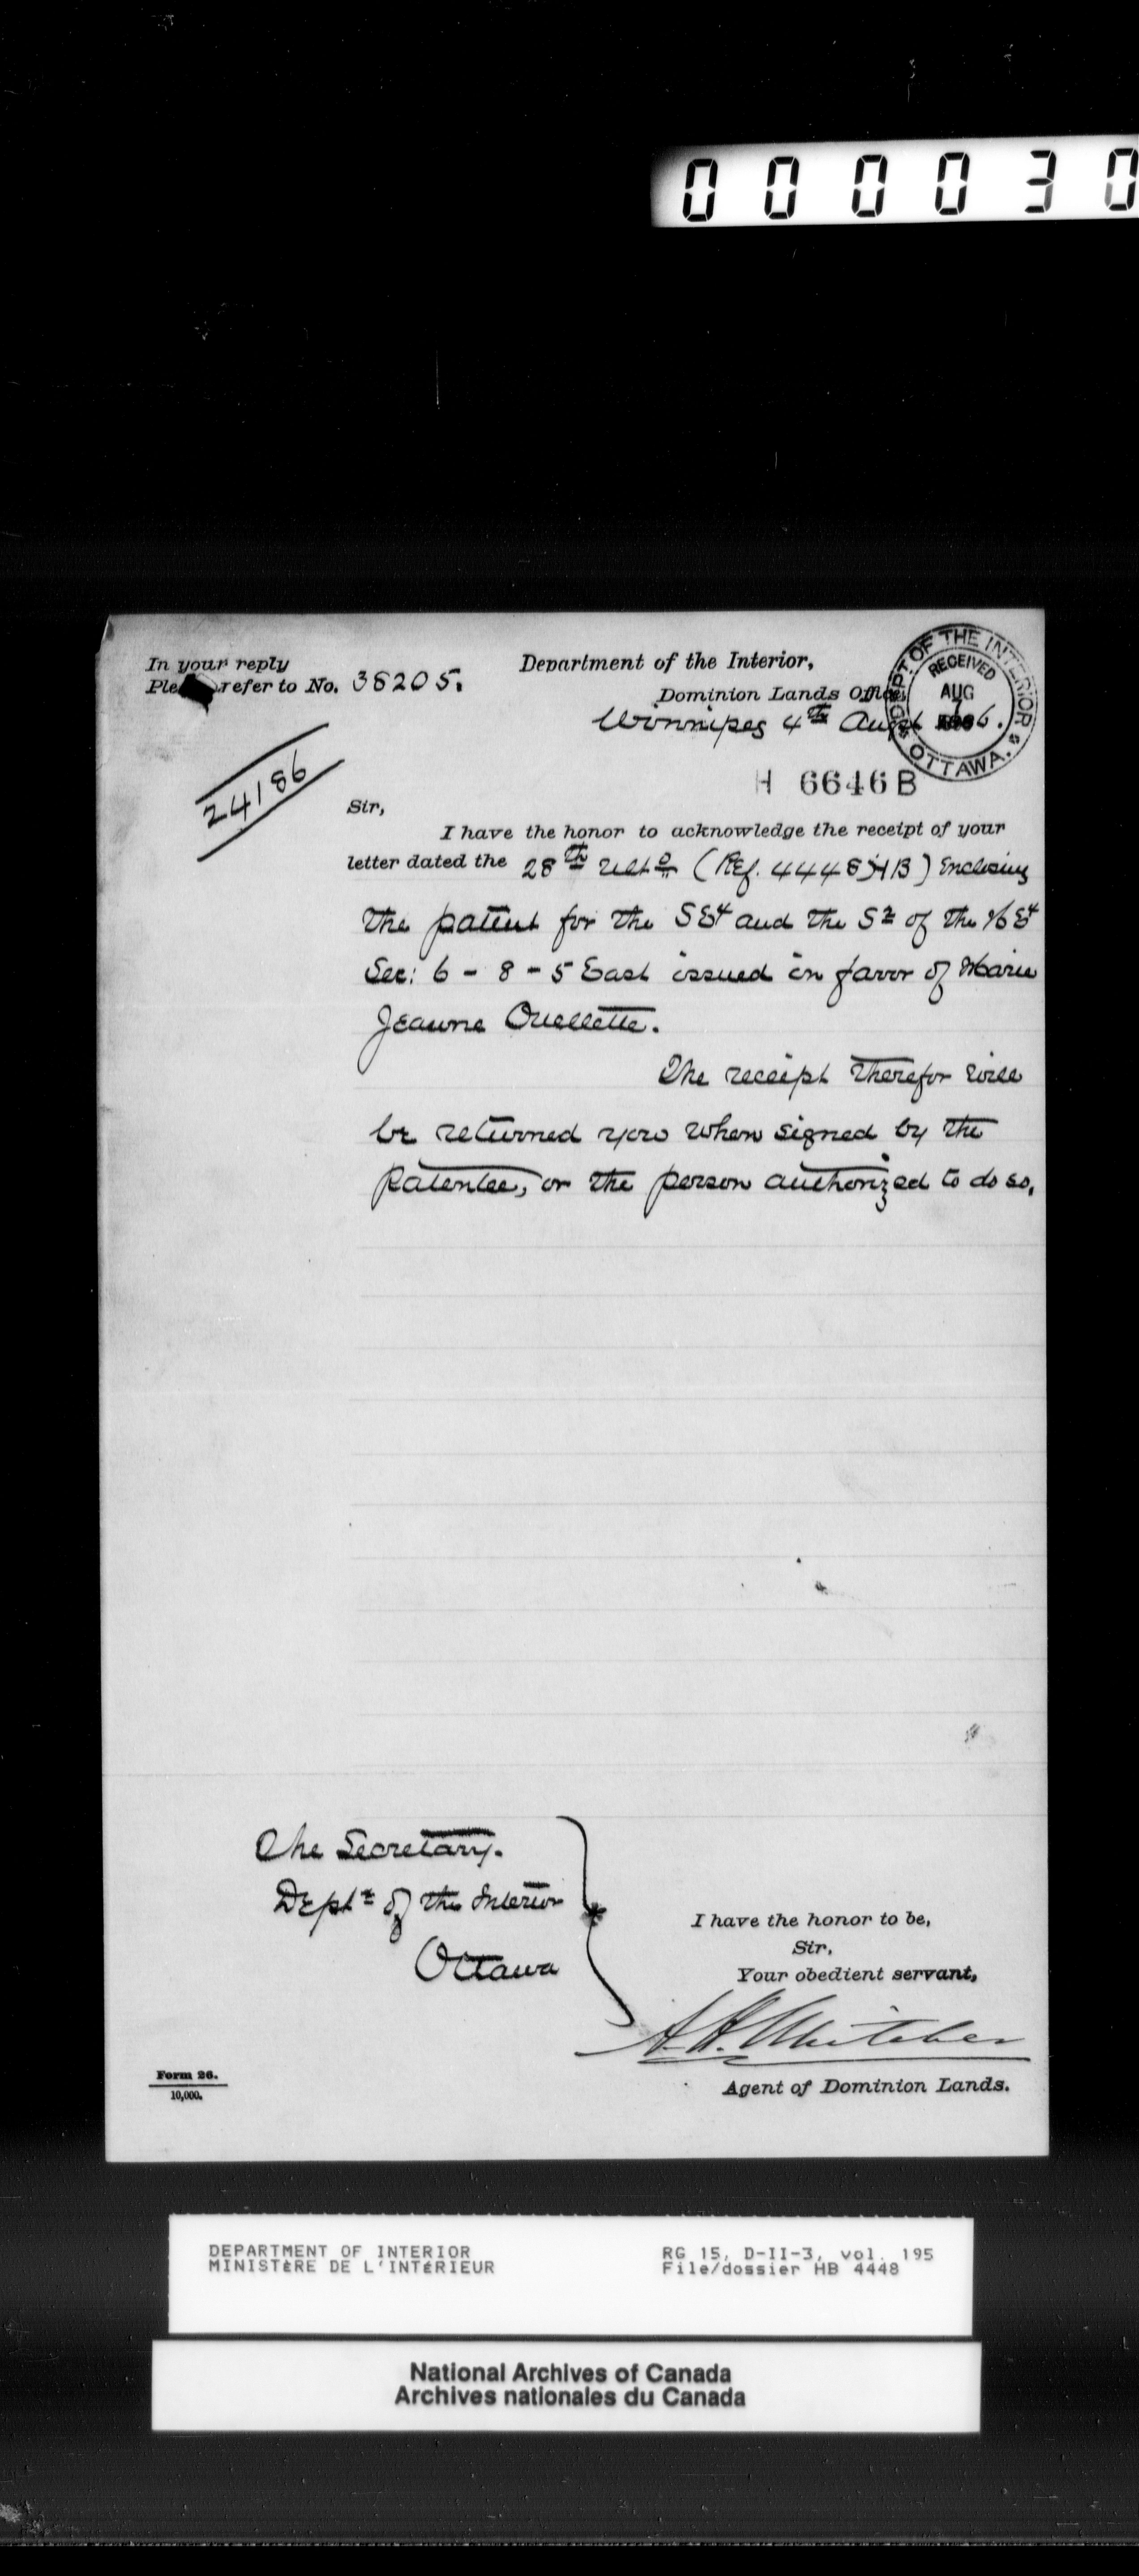 000030
In your reply
Please refer to No. 38205.
Department of the Interior,
Dominion Lands Office
Winnipeg 4th Augst 1886.
DEPT. OF THE INTERIOR
RECEIVED
AUG
OTTAWA.
H 6646 B
24186
Sir,
I have the honor to acknowledge the receipt of your
letter dated the 28th ulto (Ref. 4448 HB) Enclosing
the patent for the SE4 and the S2 of the NE4
Sec: 6 - 8 - 5 East issued in favor of Marie
Jeanne Ouellette.
The receipt therefor will
be returned you when signed by the
Patentee, or the person authorized to do so.
The Secretary.
Dept of the Interior
Ottawa
I have the honor to be,
Sir,
Your obedient servant,
A.H. Whitcher
Agent of Dominion Lands.
Form 26.
10,000.
DEPARTMENT OF INTERIOR
MINISTÈRE DE L'INTÉRIEUR
RG 15, D-II-3, vol. 195
File/dossier HB 4448
National Archives of Canada
Archives nationales du Canada